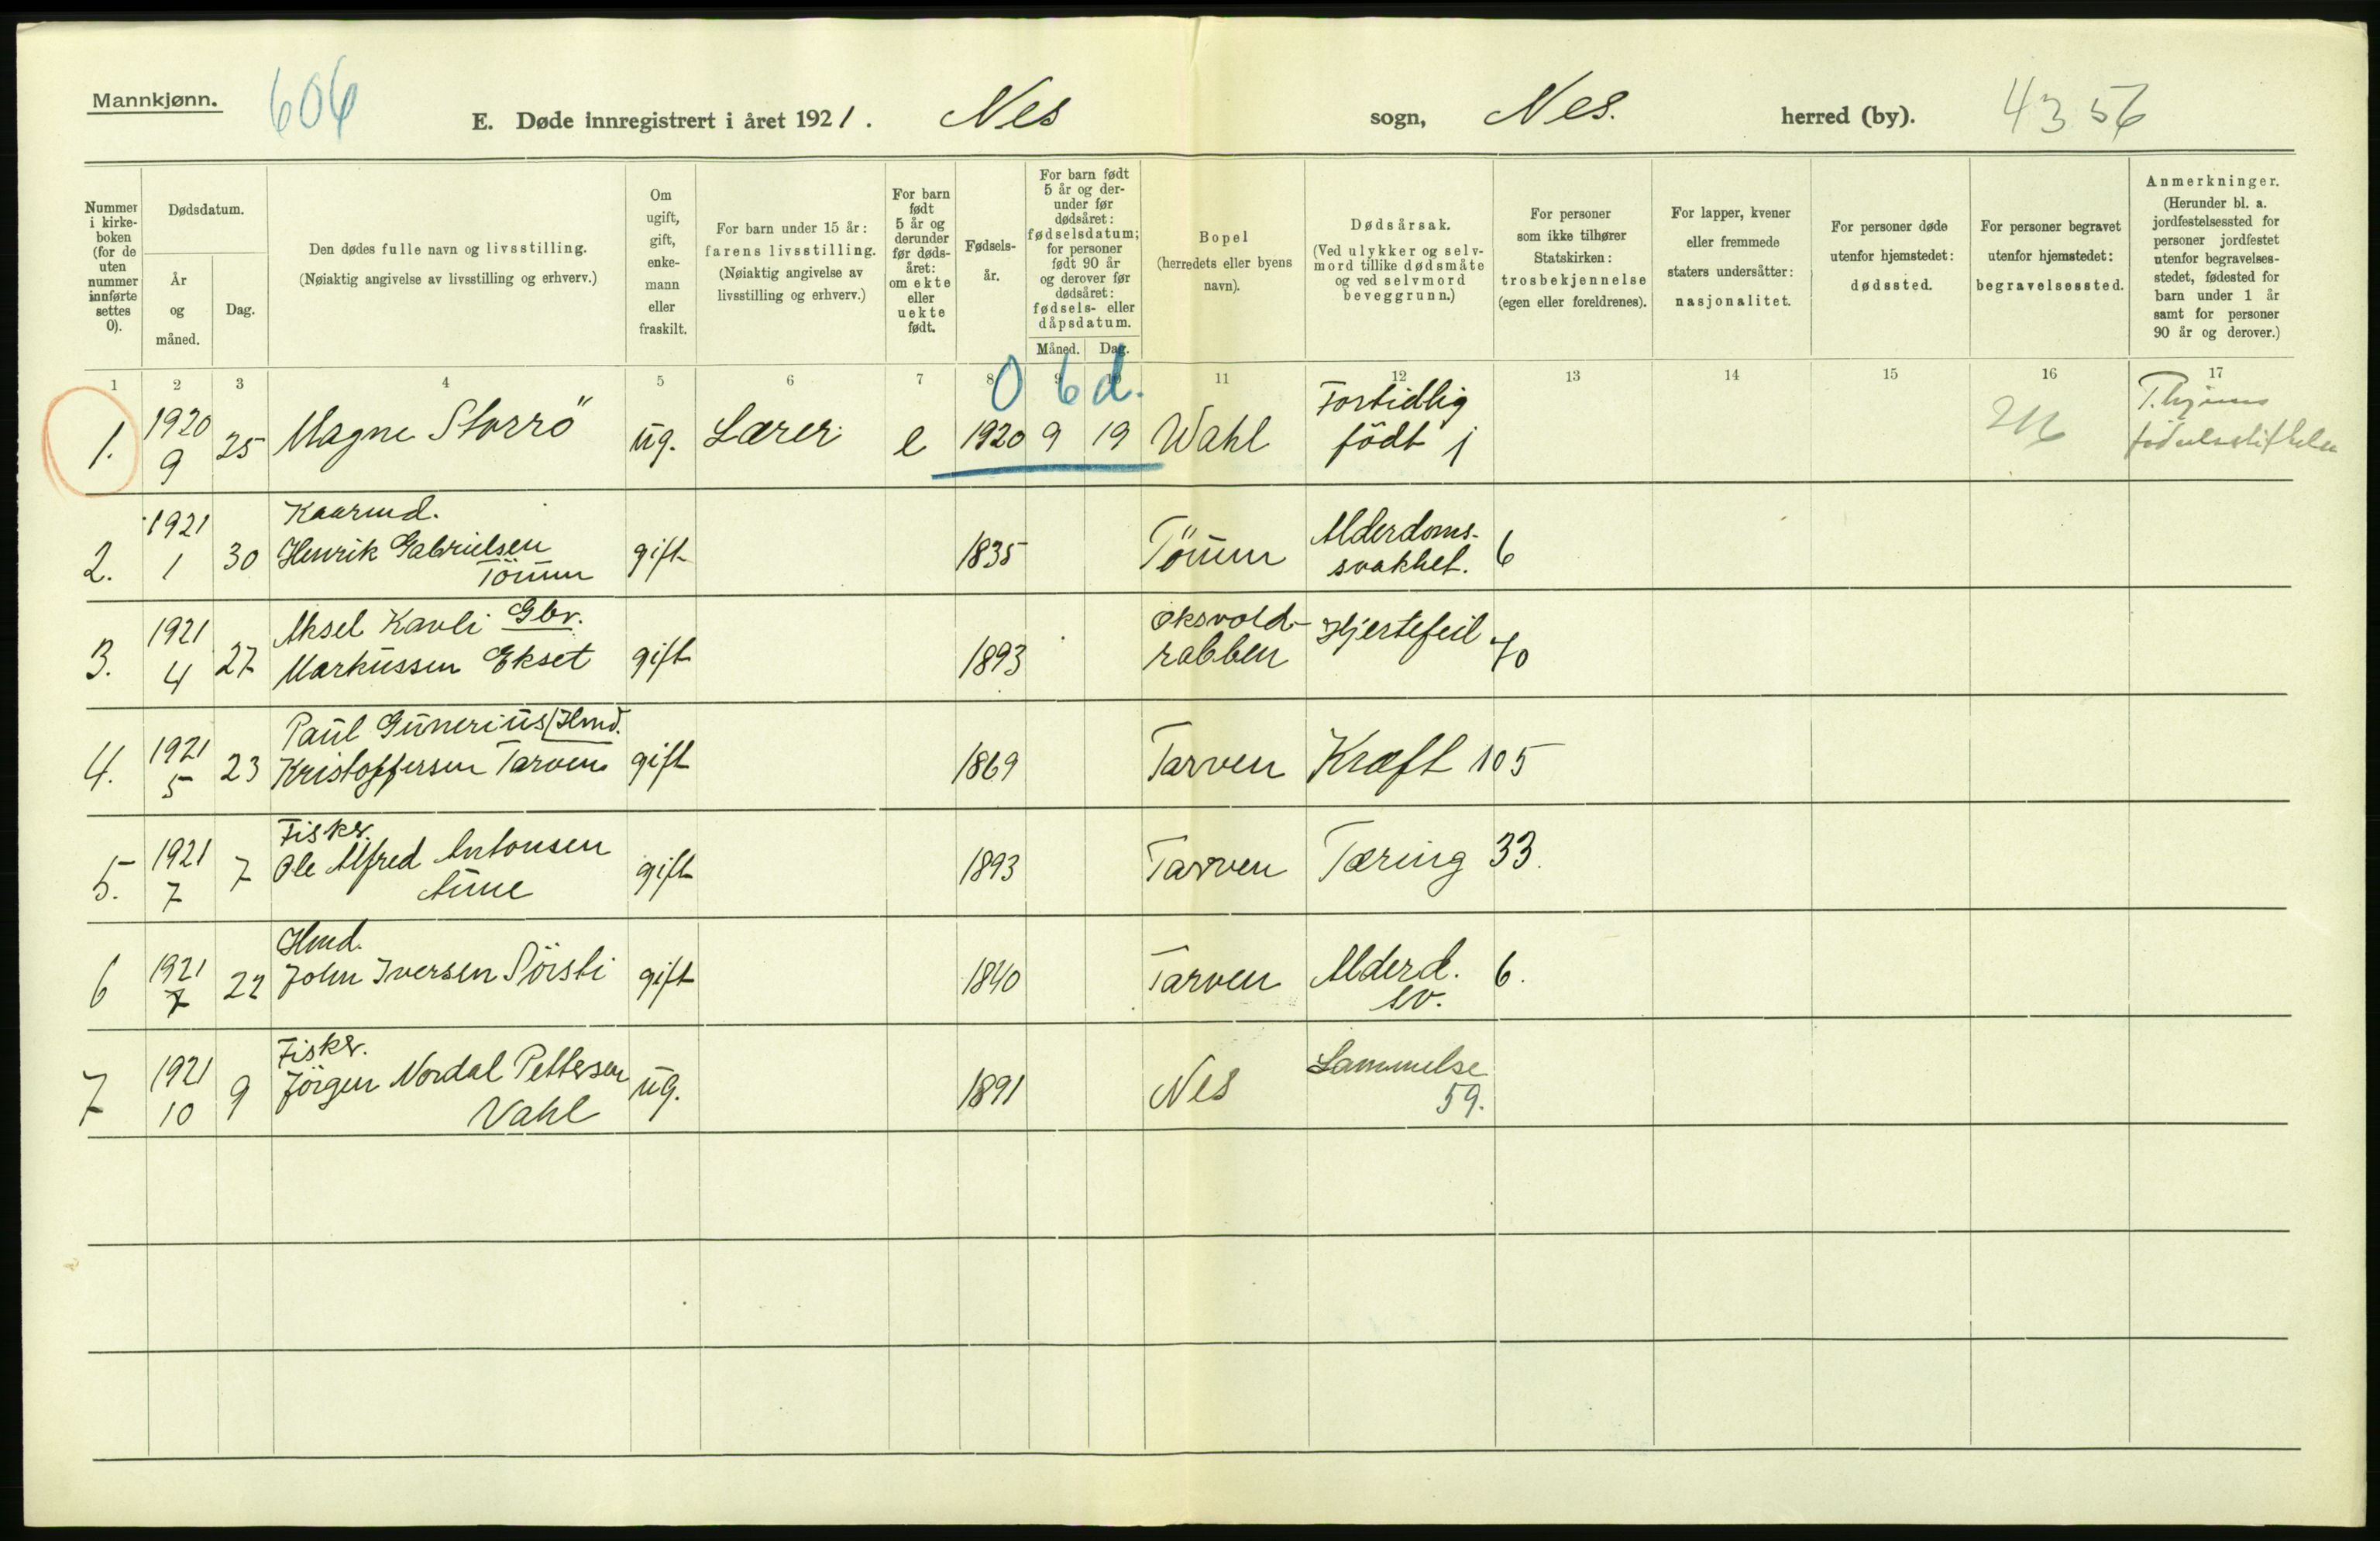 Mannkjønn.
606
E. Døde innregistrert i året 1921. Nes sogn, Nes. herred (by). 4356
Nummer i kirke- boken (for de uten nummer innførte settes 0).
Dødsdatum.
År og måned.
Dag.
Den dødes fulle navn og livsstilling.
(Nøiaktig angivelse av livsstilling og erhverv.)
Om ugift, gift, enke- mann eller fraskilt.
For barn under 15 år: farens livsstilling.
(Nøiaktig angivelse av livsstilling og erhverv.)
For barn født 5 år og derunder før døds- året: om ekte eller uekte født.
Fødsels- år.
For barn født 5 år og der- under før dødsåret: fødselsdatum; for personer født 90 år og derover før dødsåret: fødsels- eller dåpsdatum.
Måned. Dag.
Bopel (herredets eller byens navn).
Dødsårsak.
(Ved ulykker og selv- mord tillike dødsmåte og ved selvmord beveggrunn.)
For personer som ikke tilhører Statskirken: trosbekjennelse (egen eller foreldrenes).
For lapper, kvener eller fremmede staters undersåtter: nasjonalitet.
For personer døde utenfor hjemstedet: dødssted.
For personer begravet utenfor hjemstedet: begravelsessted.
Anmerkninger.
(Herunder bl. a. jordfestelsessted for personer jordfestet utenfor begravelses- stedet, fødested for barn under 1 år samt for personer 90 år og derover.)
1 2 3 4 5 6 7 8 9 10 11 12 13 14 15 16 17
0 6 d.
1. 1920 9 25 Magne Storrö ug. Lærer e 1920 9 19 Wahl Fortidlig født 1
2. 1921 1 30 Kaarmd. Henrik Gabrielsen gift 1835 Alderdoms- svakhet. 6
3. 1921 4 27 Aksel Kavli Gbr. Markussen Ekset gift 1893 Oksvold- rabben Hjertefeil 70
4. 1921 5 23 Paul Gunerius Hmd. Kristoffersen Tarven gift 1869 Tarven Kræft 105
5. 1921 7 7 Fisker. Ole Alfred Antonsen Aune gift 1893 Tarven Tæring 33.
6 1921 7 22 Hmd. John Iversen gift 1840 Tarven Alderd. sv. 6.
7 1921 10 9 Fisker. Jörgen Nordal Pettersen Vahl ug. 1891 Nes Lammelse 59.